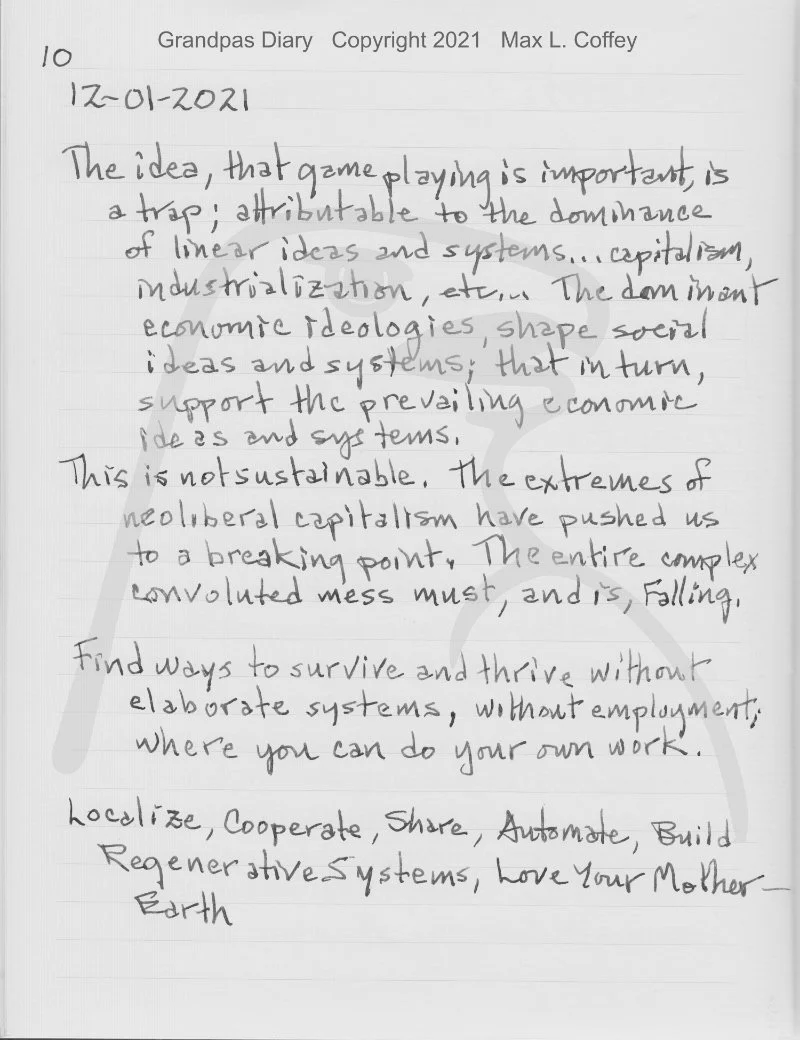 Grandpas Diary Copyright 2021 Max L. Coffey
10
12-01-2021
The idea, that game playing is important, is
a trap; attributable to the dominance
of linear ideas and systems... capitalism,
industrialization, etc... The dominant
economic ideologies, shape social
ideas and systems; that in turn,
support the prevailing economic
ideas and systems.
This is not sustainable. The extremes of
neoliberal capitalism have pushed us
to a breaking point. The entire complex
convoluted mess must, and is, Falling.
Find ways to survive and thrive without
elaborate systems, without employment;
where you can do your own work.
Localize, Cooperate, Share, Automate, Build
Regenerative Systems, Love Your Mother—
Earth